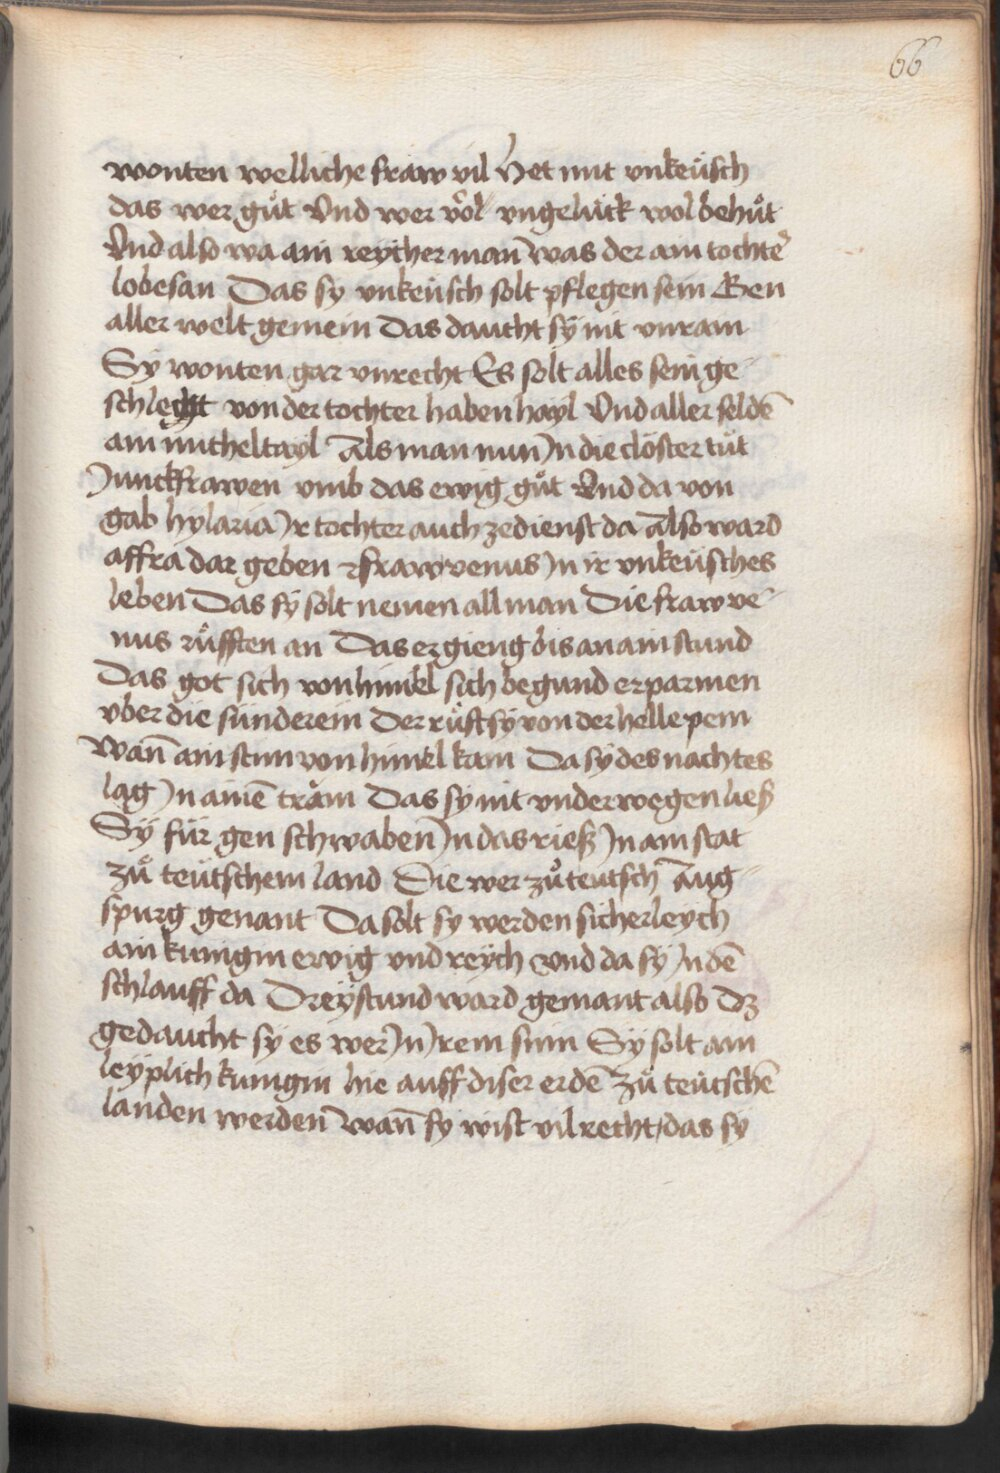 66
wonten welliche fraw vil Het mit vnkeüsch
das wer gůt Vnd wer vol vngelück wol behůt
Vnd also wa ain reycher man̄ was der ain tochte᷑
lobesan Das sy vnkeüsch solt pflegen sein Gen
aller welt gemein Das daucht sy nit vnrain
Sy wonten gar vnrecht Es solt alles sein ge-
schlecht von der tochter haben hayl Vnd aller seldē
ain micheltayl Als man nun Jn die clöster tüt
Junckfrawen vmb das ewig gůt Vnd da von
gab hylaria Jr tochter auch ze dienst da Also ward
affra dar geben fraw venus Jn ir vnkeüsches
leben Das sy solt nemen all man Die fraw ve-
nus růfften an Das ergieng bis an ain stund
Das got sich von himel sich begund erparmen
vber die sünderein Der růfft sy von der helle pein
Wan̄ ain stim von himel kam Da sy des nachtes
lag Jn ainē tram Das sy nit vnderwegen ließ
Sy für gen schwaben Jn das rieß Jn ain stat
zů teütschem land Die wer zů teutsch Aug-
spurg genant Da solt sy werden sicherleych
ain kunigin ewig vnd reych vnd da sy Jn dē
schlauff da Dreystund ward gemant also dz
gedaucht sy es wer Jn Jrem sinn Sy solt ain
leyplich kunigin hie auff diser erdē Zů teütschē
landen werden Wan̄ sy wist vil recht das sy